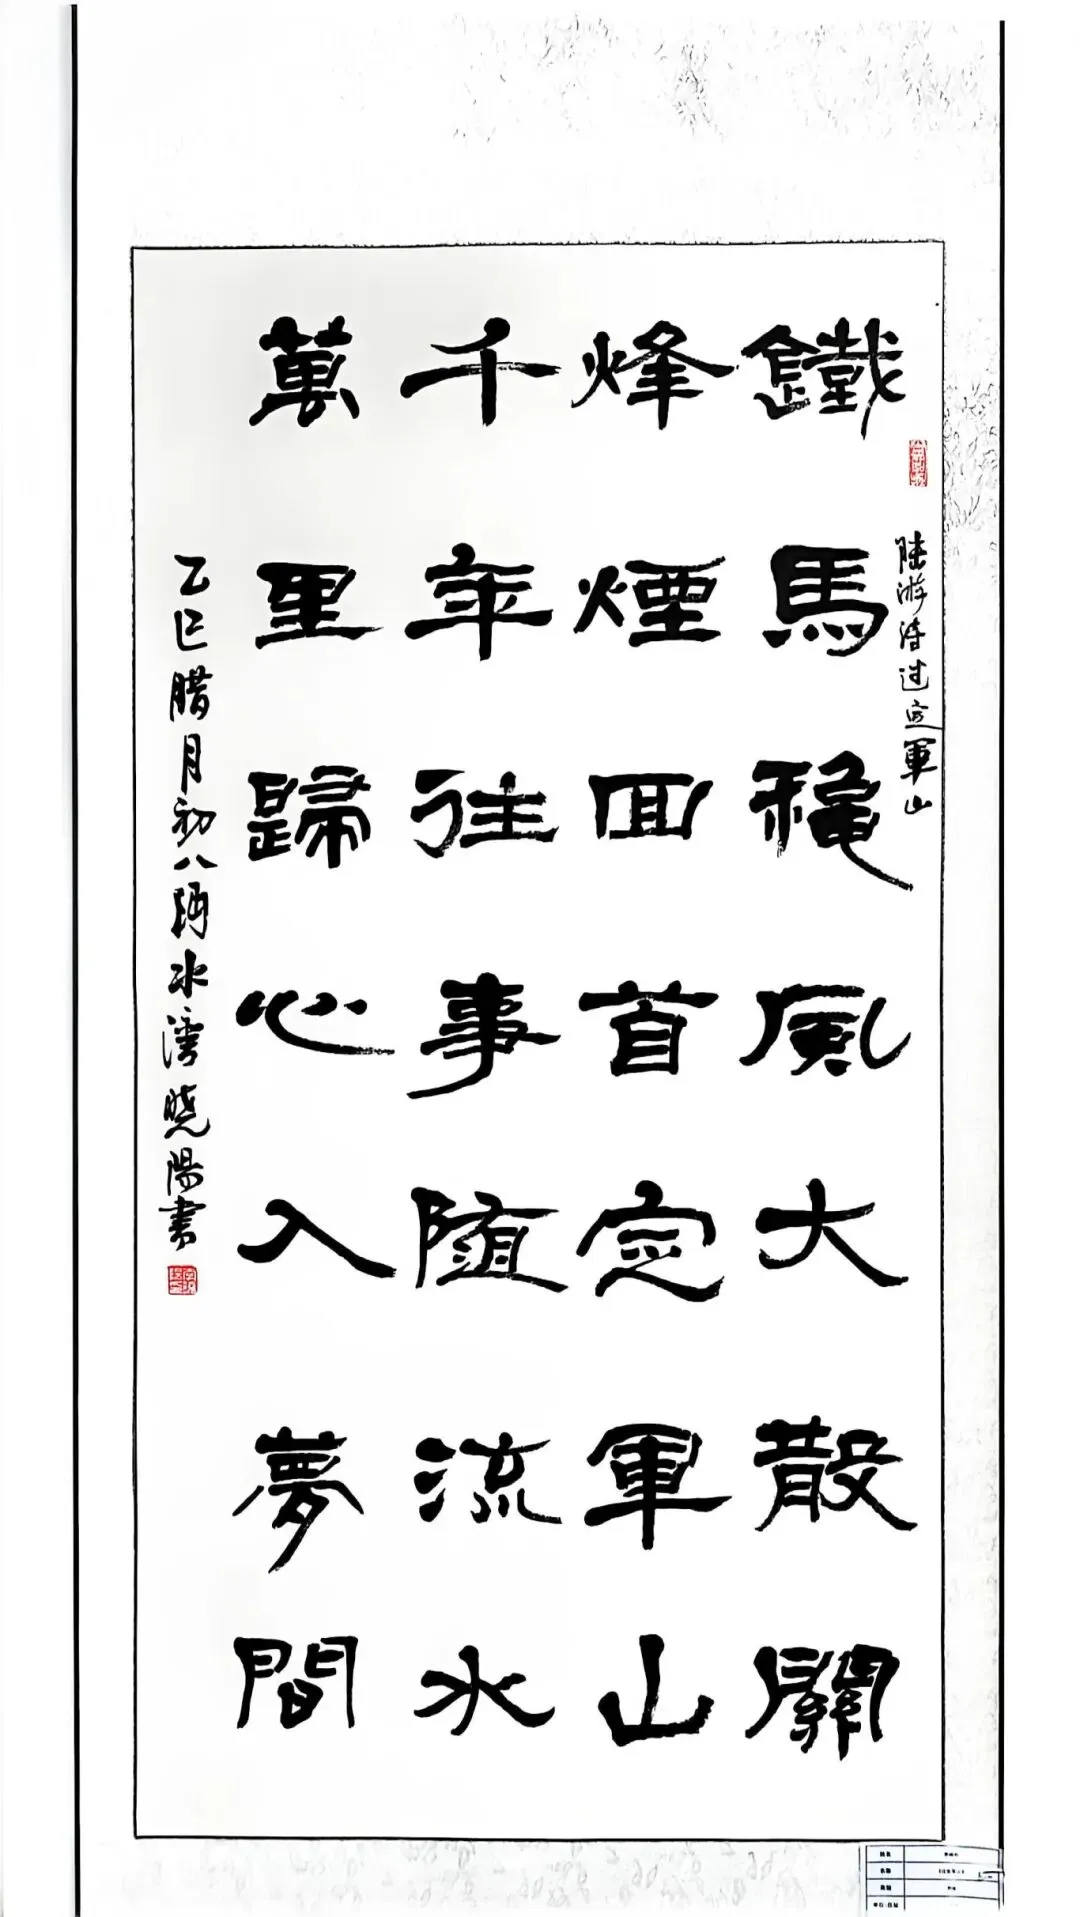 陸游诗过定軍山
鐵馬穐風大散關
烽煙囬首定軍山
千年往事随流水
萬里歸心入夢間
乙巳腊月初八水湾曉陽書